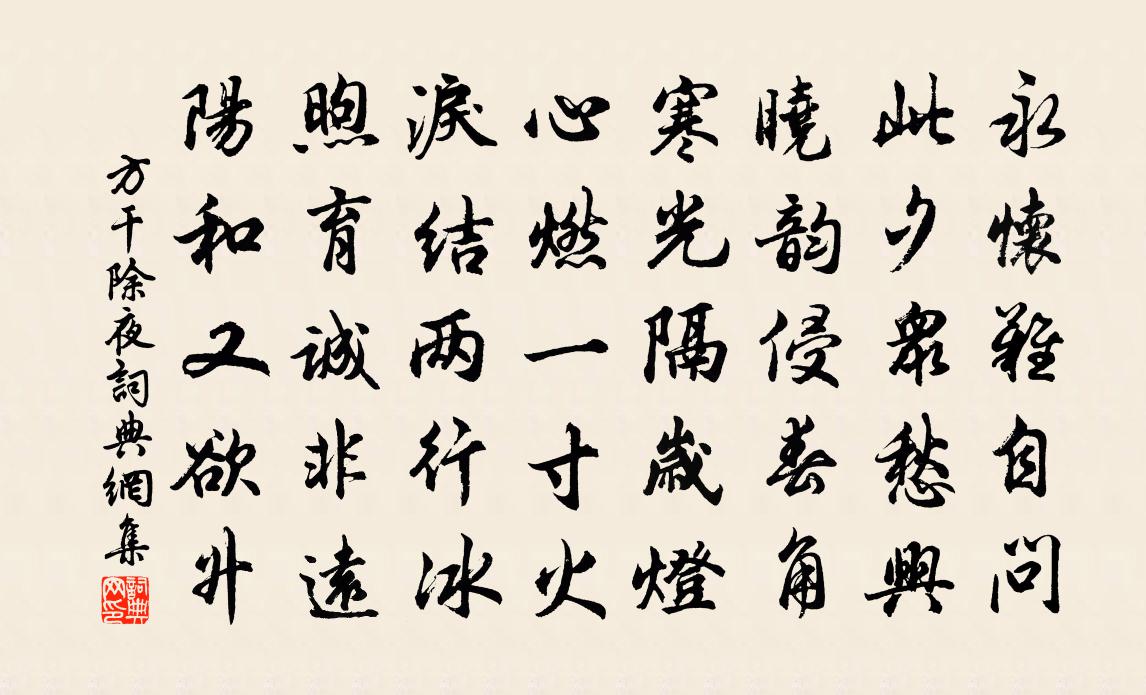 永懷難自問
此夕眾愁興
曉韵侵春角
寒光隔歲燈
心燃一寸火
淚结两行冰
煦育誠非遠
陽和又欲升
方干除夜詞典網集
詞典網印